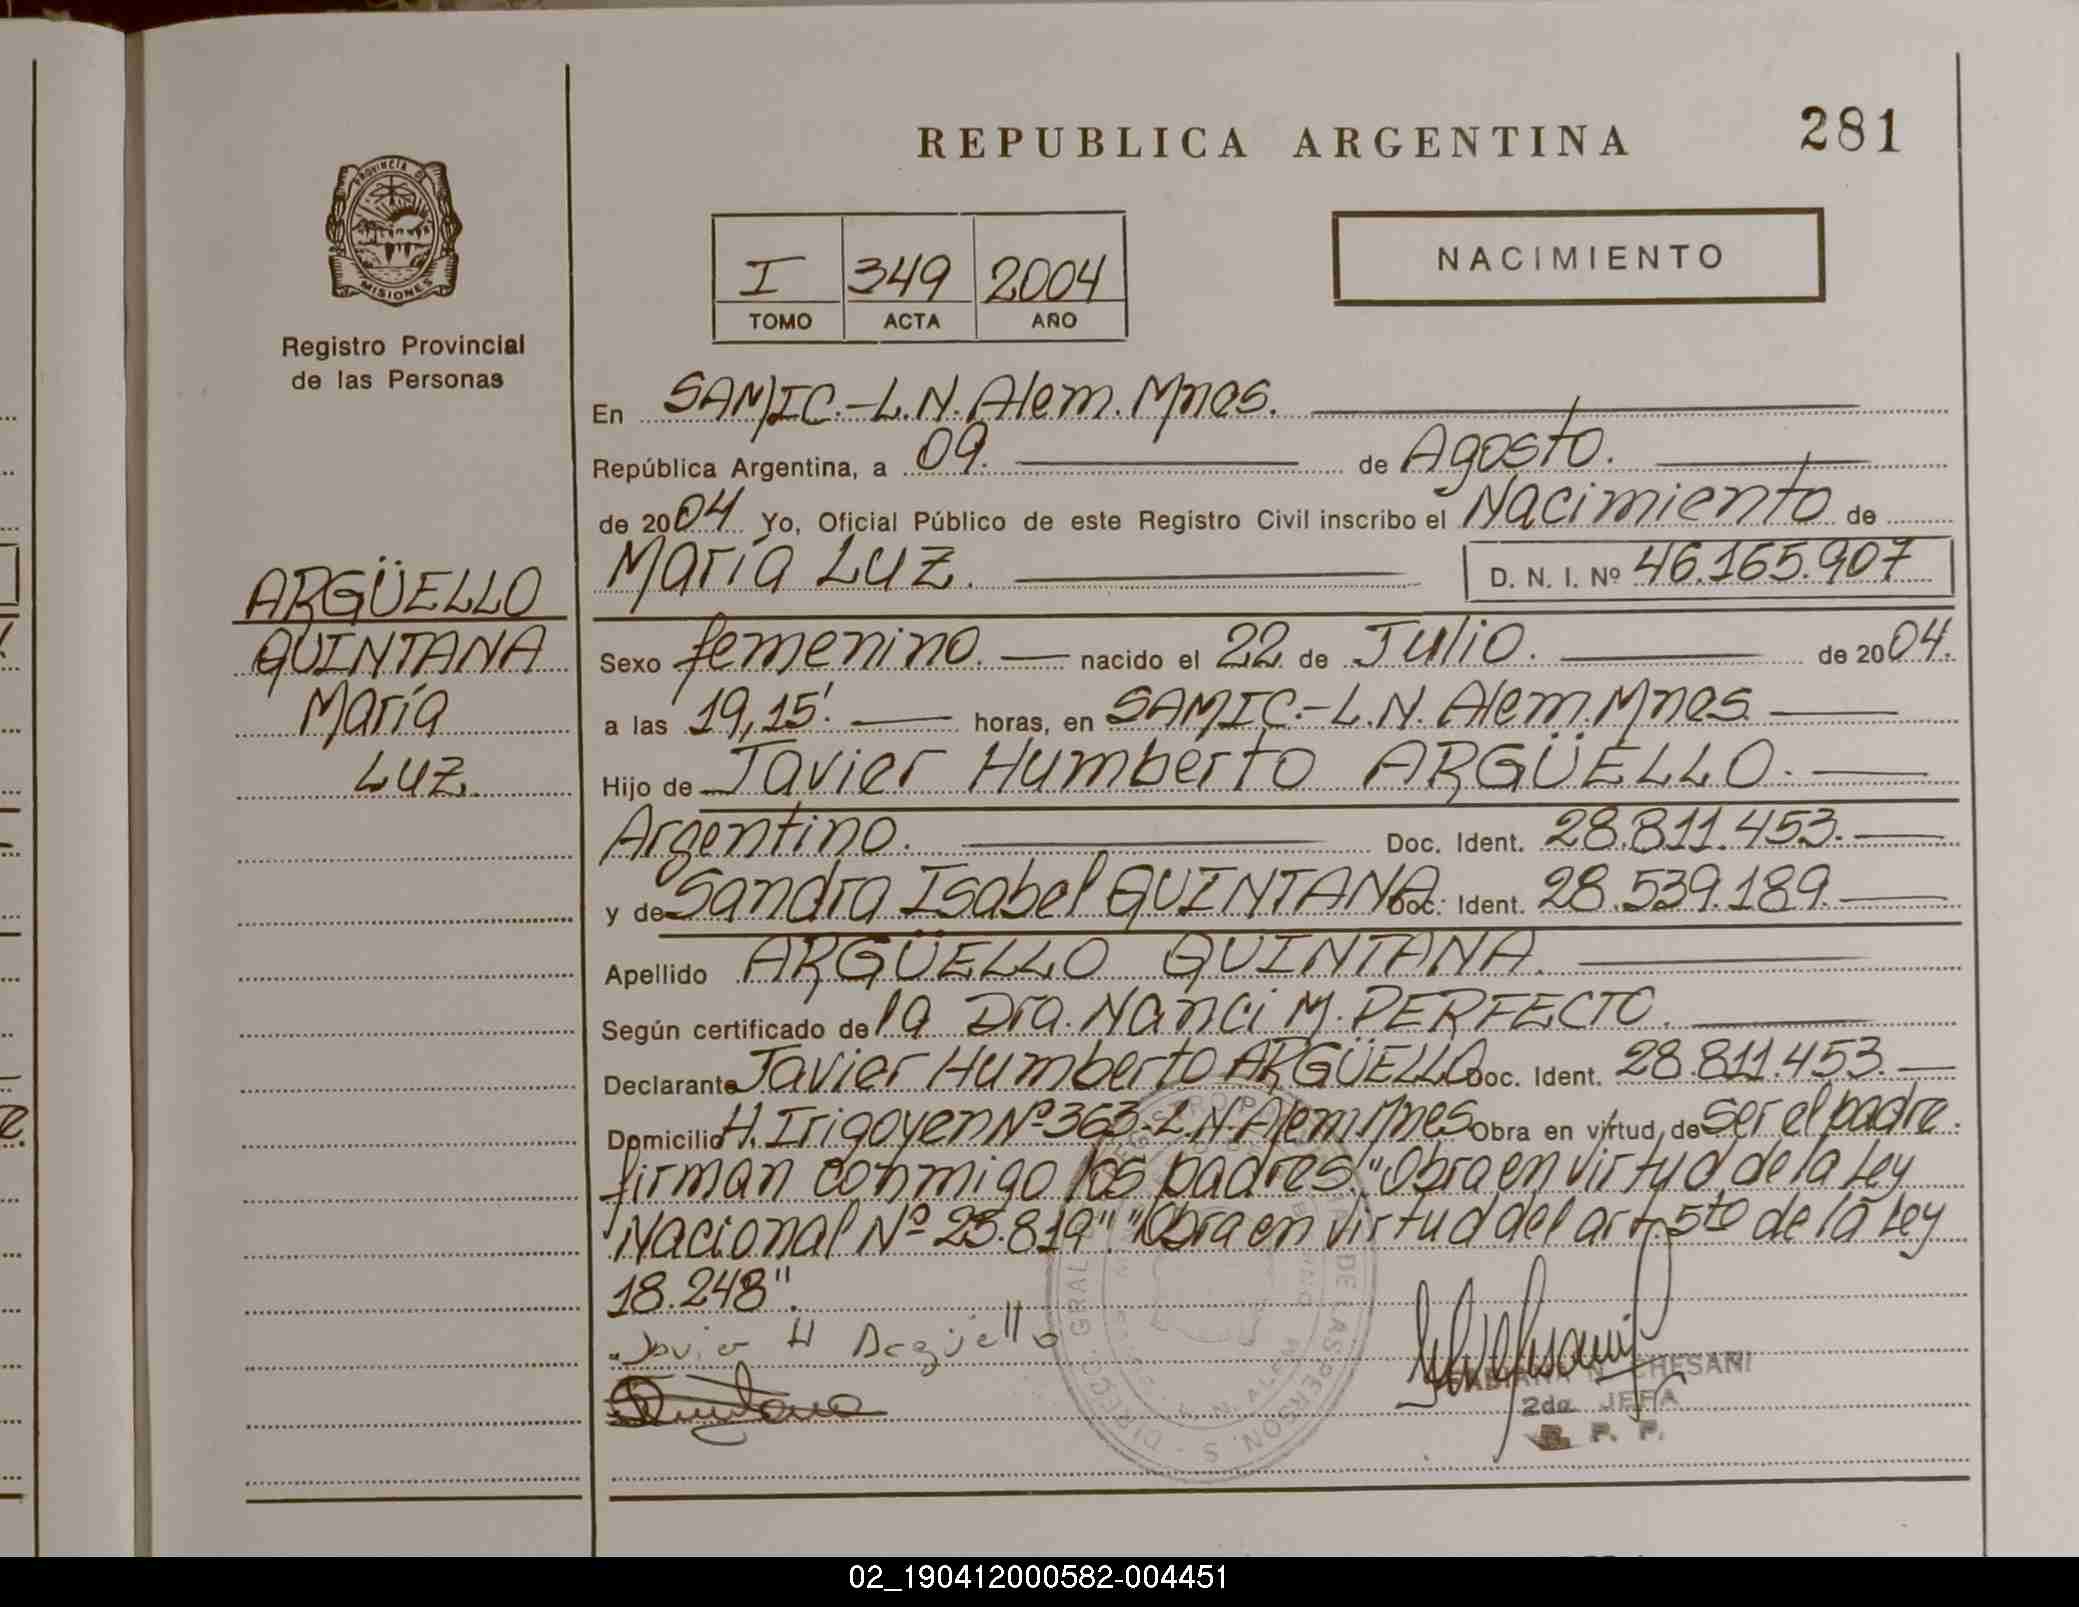 REPUBLICA ARGENTINA
281
PROVINCIA DE
MISIONES
Registro Provincial
de las Personas
I 349 2004
TOMO ACTA AÑO
NACIMIENTO
ARGÜELLO
QUINTANA
María
Luz.
En SAMIC.-L.N.Alem.Mnes.
República Argentina, a 09. de Agosto.
de 2004 Yo, Oficial Público de este Registro Civil inscribo el Nacimiento de
María Luz. D. N. I. Nº 46.165.907
Sexo femenino. nacido el 22 de Julio. de 2004.
a las 19,15'. horas, en SAMIC.-L.N.Alem.Mnes
Hijo de Javier Humberto ARGÜELLO.
Argentino. Doc. Ident. 28.811.453.
y de Sandra Isabel QUINTANA Doc. Ident. 28.539.189.
Apellido ARGÜELLO QUINTANA.
Según certificado de la Dra. Nanci M. PERFECTO.
Declarante Javier Humberto ARGÜELLO Doc. Ident. 28.811.453.
Domicilio H. Irigoyen Nº 363-L.N.Alem Mnes Obra en virtud de ser el padre.
firman conmigo los padres. "Obra en virtud de la Ley
Nacional Nº 25.819". "Obra en virtud del art. 5to de la Ley
18.248".
Javier H Argüello
Quintana
CHESANI
2da JEFA
R. P. P.
02_190412000582-004451